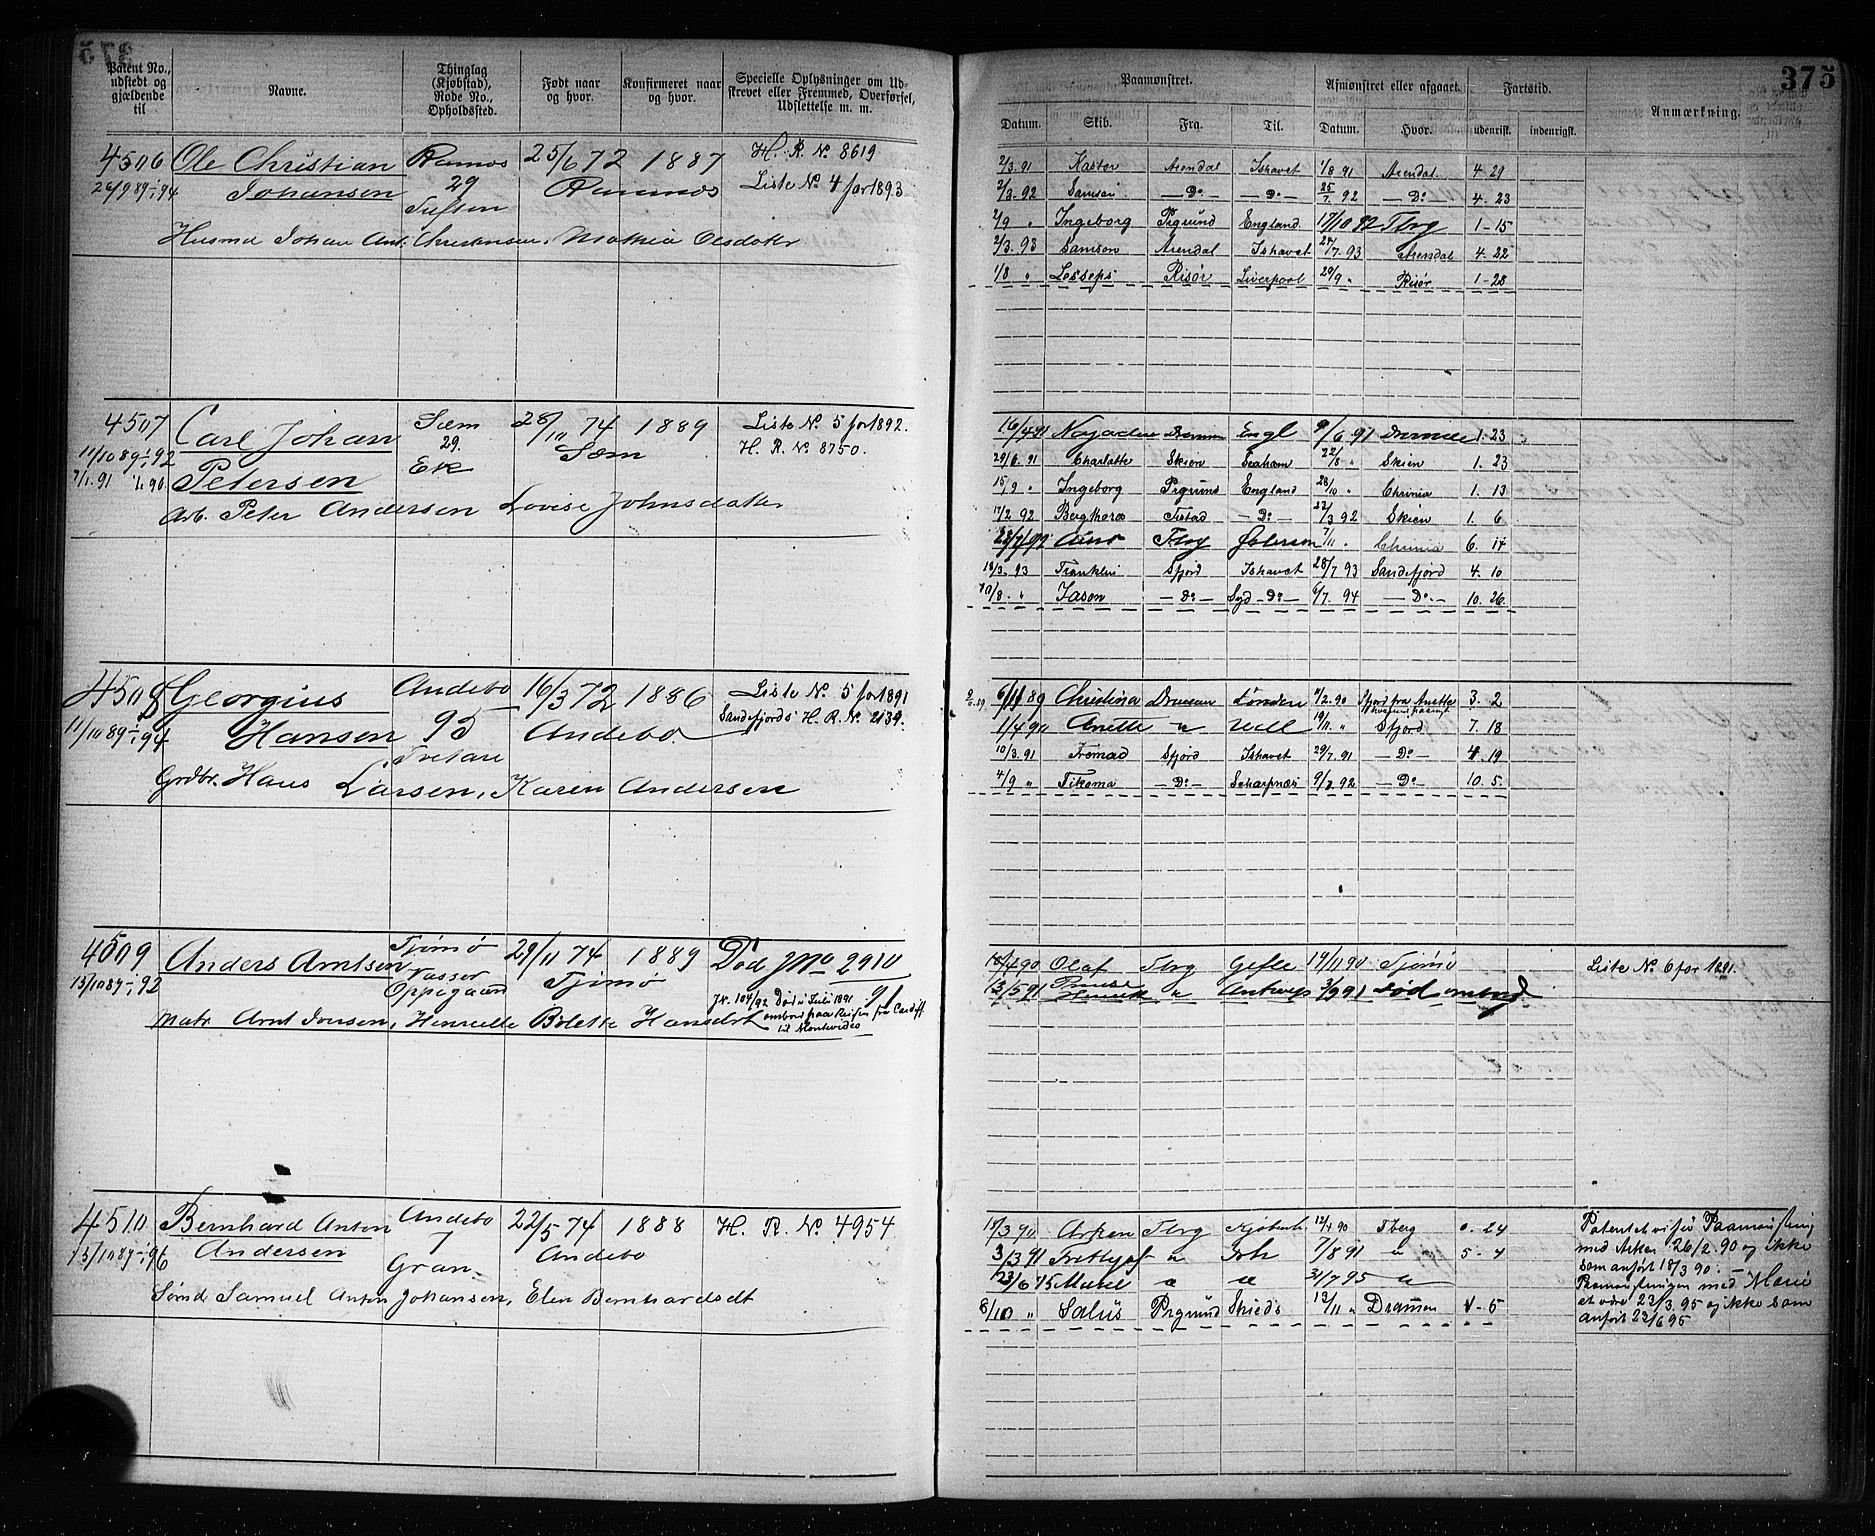 375
Patent No., udstedt og gjældende til
Navne.
Thinglag (Kjøbstad), Rode No., Opholdssted.
Født naar og hvor.
Konfirmeret naar og hvor.
Specielle Oplysninger om Udskrevet eller Fremmed, Overførsel, Udslettelse m. m.
Paamønstret.
Afmønstret eller afgaaet.
Fartstid.
Anmærkning.
Datum. Skib. Fra. Til. Datum. Hvor. udenrigsk. indenrigsk.
4506 Ole Christian Ramnes 25/6 72 1887 H. R. No. 8619
Johansen 29 Ramnes Liste No. 4 for 1893
Husmd Johan Ant. Christensen, Mathia Olsdatter
2/3. 91 Kastor Arendal Ishavet 1/8 91 Arendal 4 29
2/3. 92 Samson — Do — — Do — 25/7. 92 — Do — 4. 23
2/9 " Ingeborg Prgrund England 17/10 92 Tbrg 1-15
2/3. 93 Samson Arendal Ishavet 93 Arendal 4. 22
1/8 " Lesseps Risør Liverpool 29/9 " Risør 1-28
4507 Carl Johan Sæm 28/11 74 1889 Liste No. 5 for 1892.
11/10 89-1/1 92 29. Sæm H. R. No. 8750.
7/1. 91 Petersen Ek
Arb. Peter Andersen Lovise Johnsdatter
16/4 91 Najaden Drammen Engl 9/6 91 Drammen 1. 23
29/6. 91 Charlotte Skien Seaham 22/8 " Skien 1. 23
15/9 " Ingeborg Prgrund England 28/10 " Chrania 1. 13
17/2 92 Bergthora Fstad — Do — 22/3 92 Skien 1. 6
Tbrg 7/11 " Chrania 6. 14
18/3. 93 Franklin Sfjord Ishavet 28/7 93 Sandefjord 4. 10
10/8. " Jason — Do — Syd — Do — 6/7. 94 — Do — 10. 26.
4508 Georgius Andebo 16/3 72 1886 Liste No. 5 for 1891
11/10 89-1/1 94 Hansen 95 Andebo. Sandefjords H. R. No. 2139.
Tretare
Grdbr. Hans Larsen, Karen Andersen
6/11 89 Christina Drammen London 7/2. 90 Sfjord fra Anette 3. 2
1/4 90 Anette " Hull 19/11. " Sfjord 7. 18
10/3. 91 Fremad Sfjord Ishavet 29/7. 91 — Do — 4. 19
4/9 " Tikoma — Do — Scharpnæs 9/7. 92 — Do — 10. 5.
4509 Anders Arntsen Tjømø 29/11 74 1889 Død Jno 2910
15/10 89-1/1 92 Vasser Tjømø 91
Oppegaard Jr. 104/92 Død i Juli 1891
ombord paa Reisen fra Cardiff
Matr Arnt Jonsen, Henrielle Bolette Hansdat til Montevideo
18/4 90 Olaf Tbrg Gefle 19/11 90 Tjømø Liste No. 6 for 1891.
13/5 91 Prinse " Antwerp 3/9 91 Død ombord
4510 Bernhard Anton Andebo 22/5 74 1888 H. R. No. 4954
15/10 89-1/1 96 Andersen 7 Andebo
Gran
Sømd Samuel Anton Johansen, Elen Bernhardsdt
18/3 90 Arken Tbrg 12/4 90 Tberg 0. 24
3/3 91 " 7/8 91 " 5. 4
23/6 95 " " 21/7 95 "
8/10 " Salus Prgrund Shields 13/11 " Drammen 1-5
Patentet viser Paamønstring
med Arken 26/2. 90 og ikke
som anført 18/3 90. —
Paamønstringen med Marie
23/3. 95 og ikke som
anført 23/6 95